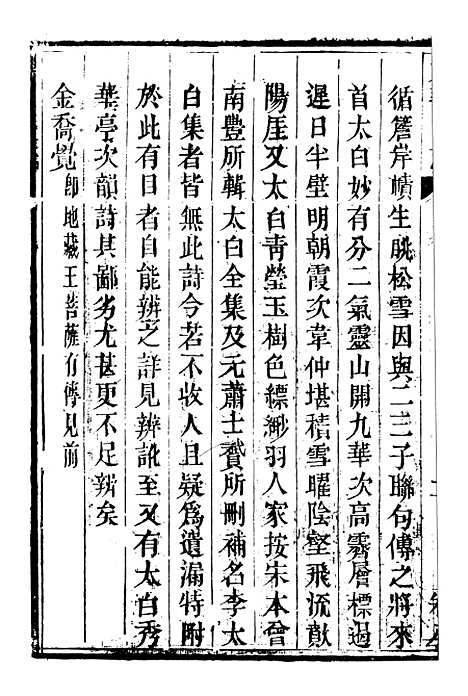 循簷岸幘坐眺松雪因與二三子聯句傳之將來
首太白妙有分二氣靈山開九華次高霽層標遏
遲日半壁明朝霞次韋仲堪積雪曜陰壑飛流歕
陽厓又太白青瑩玉樹色縹緲羽人家按宋本曾
南豐所輯太白全集及元蕭士贇所刪補名李太
白集者皆無此詩今若不收人且疑爲遺漏特附
於此有目者自能辨之詳見辨訛至又有太白秀
華亭次韻詩其鄙劣尤甚更不足辨矣
金喬覺即地藏王菩薩有傳見前